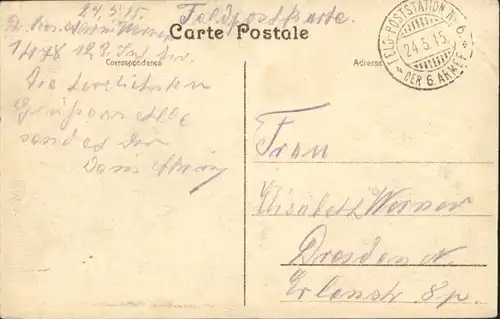 24.5.15.
Feldpostkarte.
Carte Postale
FELD-POSTSTATION Nr. 6.
24.5.15.
DER 6. ARMEE
Correspondance
Adresse
Die herzlichsten
Grüße
sendet Dir
Dein
Frau
Elisabeth Werner
Dresden N.
Erlenstr 8p.